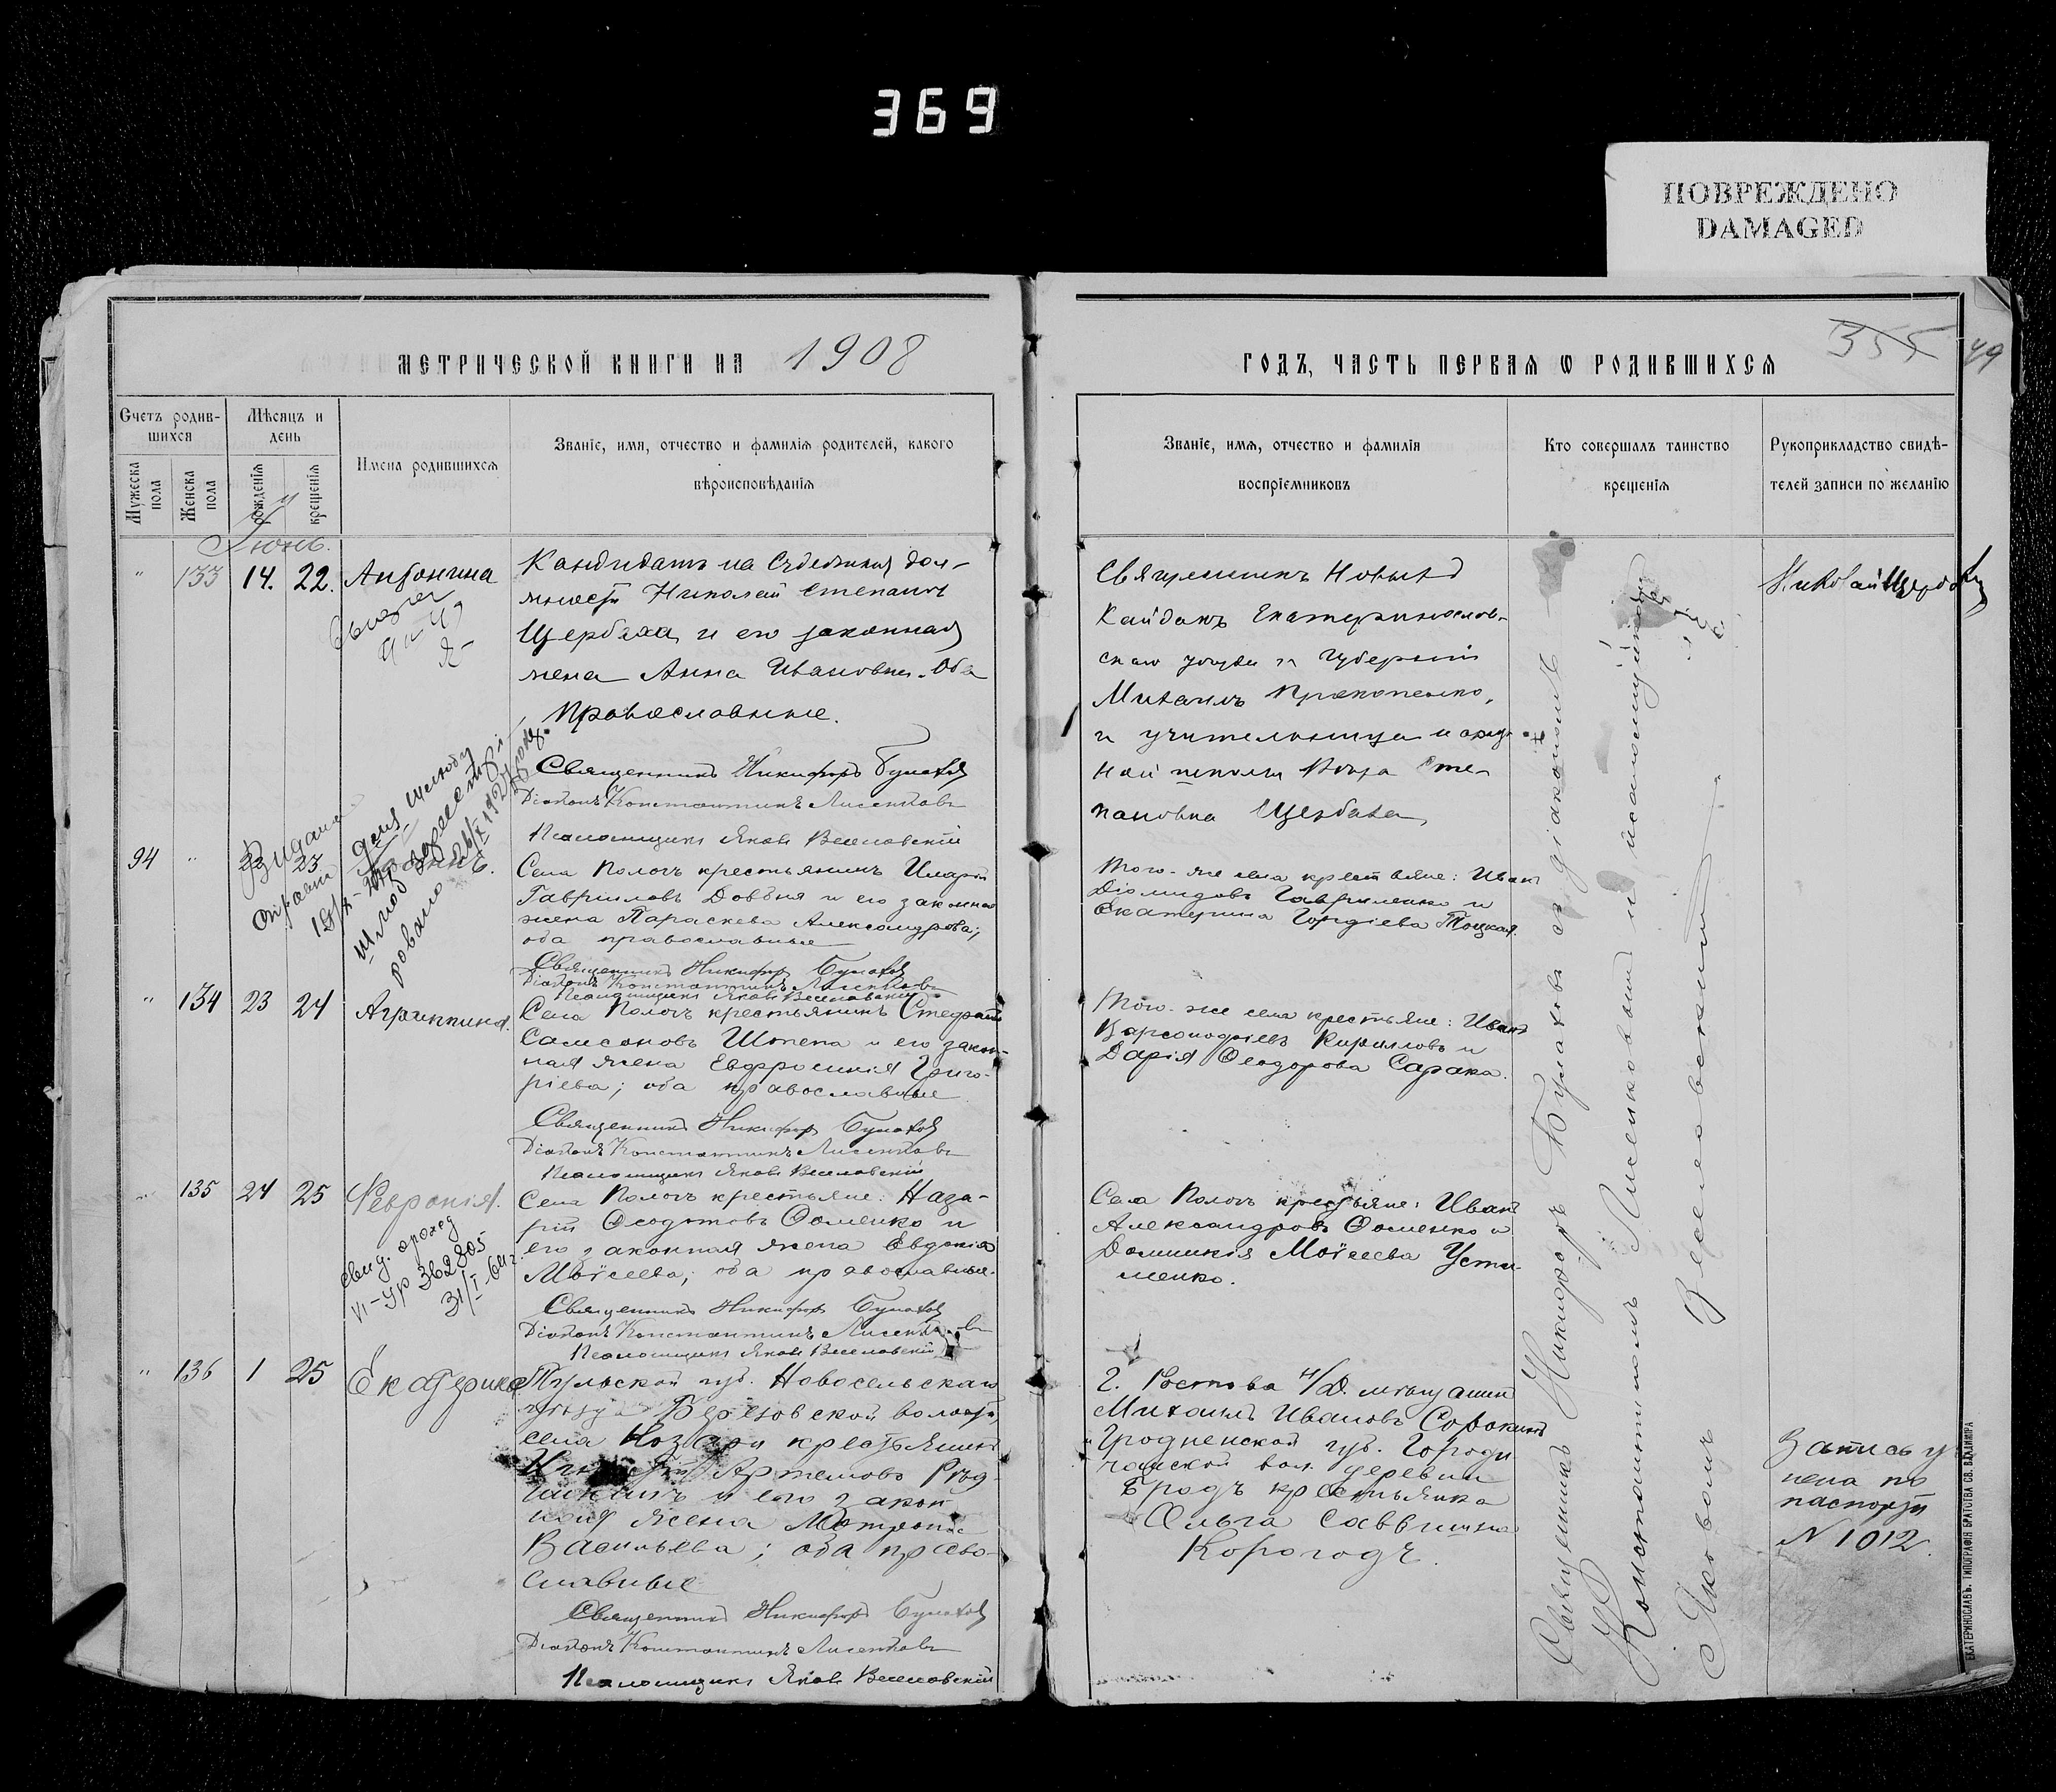 369
ПОВРЕЖДЕНО
DAMAGED
МЕТРИЧЕСКОЙ КНИГИ НА 1908
ГОДЪ, ЧАСТЬ ПЕРВАЯ Ѡ РОДИВШИХСЯ
355
49
Счетъ родив-
шихся
Мужеска
пола
Женска
пола
Мѣсяцъ и
день
рожденія
крещенія
Имена родившихся
Званіе, имя, отчество и фамилія родителей, какого
вѣроисповѣданія
Званіе, имя, отчество и фамилія
воспріемниковъ
Кто совершалъ таинство
крещенія
Рукоприкладство свидѣ-
телей записи по желанію
Іюнь.
" 133 14. 22. Антонина
Кандидатъ на Судебныя дол-
жности Николай Степановъ
Щербака и его законная
жена Анна Ивановна. Оба
Православные.
Священникъ Никифоръ Булахов
Діаконъ Константинъ Лисенковъ
Псаломщикъ Яковъ Веселовскій
Священникъ Новыхъ
Кайдакъ Екатеринослав-
скаго уѣзда и Губерніи
Михаилъ Прокопенко,
и учительница народ
ной школы Вѣра Сте-
пановна Щербака
Николай Щербака
94 " 23 23
Выдана
справка
Села Пологъ крестьянинъ Иларіонъ
Гавриловъ Довбня и его законная
жена Параскева Александрова;
оба православные
Священникъ Никифоръ Булахов
Діаконъ Константинъ Лисенковъ
Псаломщикъ Яковъ Веселовскій
Того-же села крестьяне: Иванъ
Діомидовъ Гавриленко и
Екатерина Гордіева Троцкая.
" 134 23 24 Агриппина.
Села Пологъ крестьянинъ Стефанъ
Самсоновъ Шпепа и его закон-
ная жена Евфросинія Григо-
ріева; оба православные
Священникъ Никифоръ Булахов
Діаконъ Константинъ Лисенковъ
Псаломщикъ Яковъ Веселовскій
Того-же села крестьяне: Иванъ
Варсонофіевъ Кирилловъ и
Дарія Ѳеодорова Сарака.
" 135 24 25 Февронія.
VI-УР 362805
31/I-64г.
Села Пологъ крестьяне: Наза-
рій Ѳеодотовъ Ѳоменко и
его законная жена Евдокія
Моѵсеева; оба православные.
Священникъ Никифоръ Булахов
Діаконъ Константинъ Лисенковъ
Псаломщикъ Яковъ Веселовскій
Села Пологъ крестьяне: Иванъ
Александровъ Ѳоменко и
Домникія Моѵсеева Усти-
менко.
" 136 1 25 Екатерина
Тульской губ. Новосельскаго
уѣзда Березовской волости,
села крестьянинъ
Артемовъ
и его закон
ная жена Матрона
Васильева; оба право-
славные
Священникъ Никифоръ Булахов
Діаконъ Константинъ Лисенковъ
Псаломщикъ Яковъ Веселовскій
г. Ростова н/Д. мѣщанинъ
Михаилъ Ивановъ Сорокинъ
Гродненской губ. Городи
чанской вол. деревни
Бродъ крестьянка
Ольга Саввишна
Корогодъ.
Запись у
нена по
паспорту
N 1012.
Священникъ Никифоръ Булаховъ съ діакономъ
Константиномъ Лисенковымъ и псаломщикомъ
Яковомъ Веселовскимъ
ЕКАТЕРИНОСЛАВЪ. ТИПОГРАФІЯ БРАТСТВА СВ. ВЛАДИМІРА